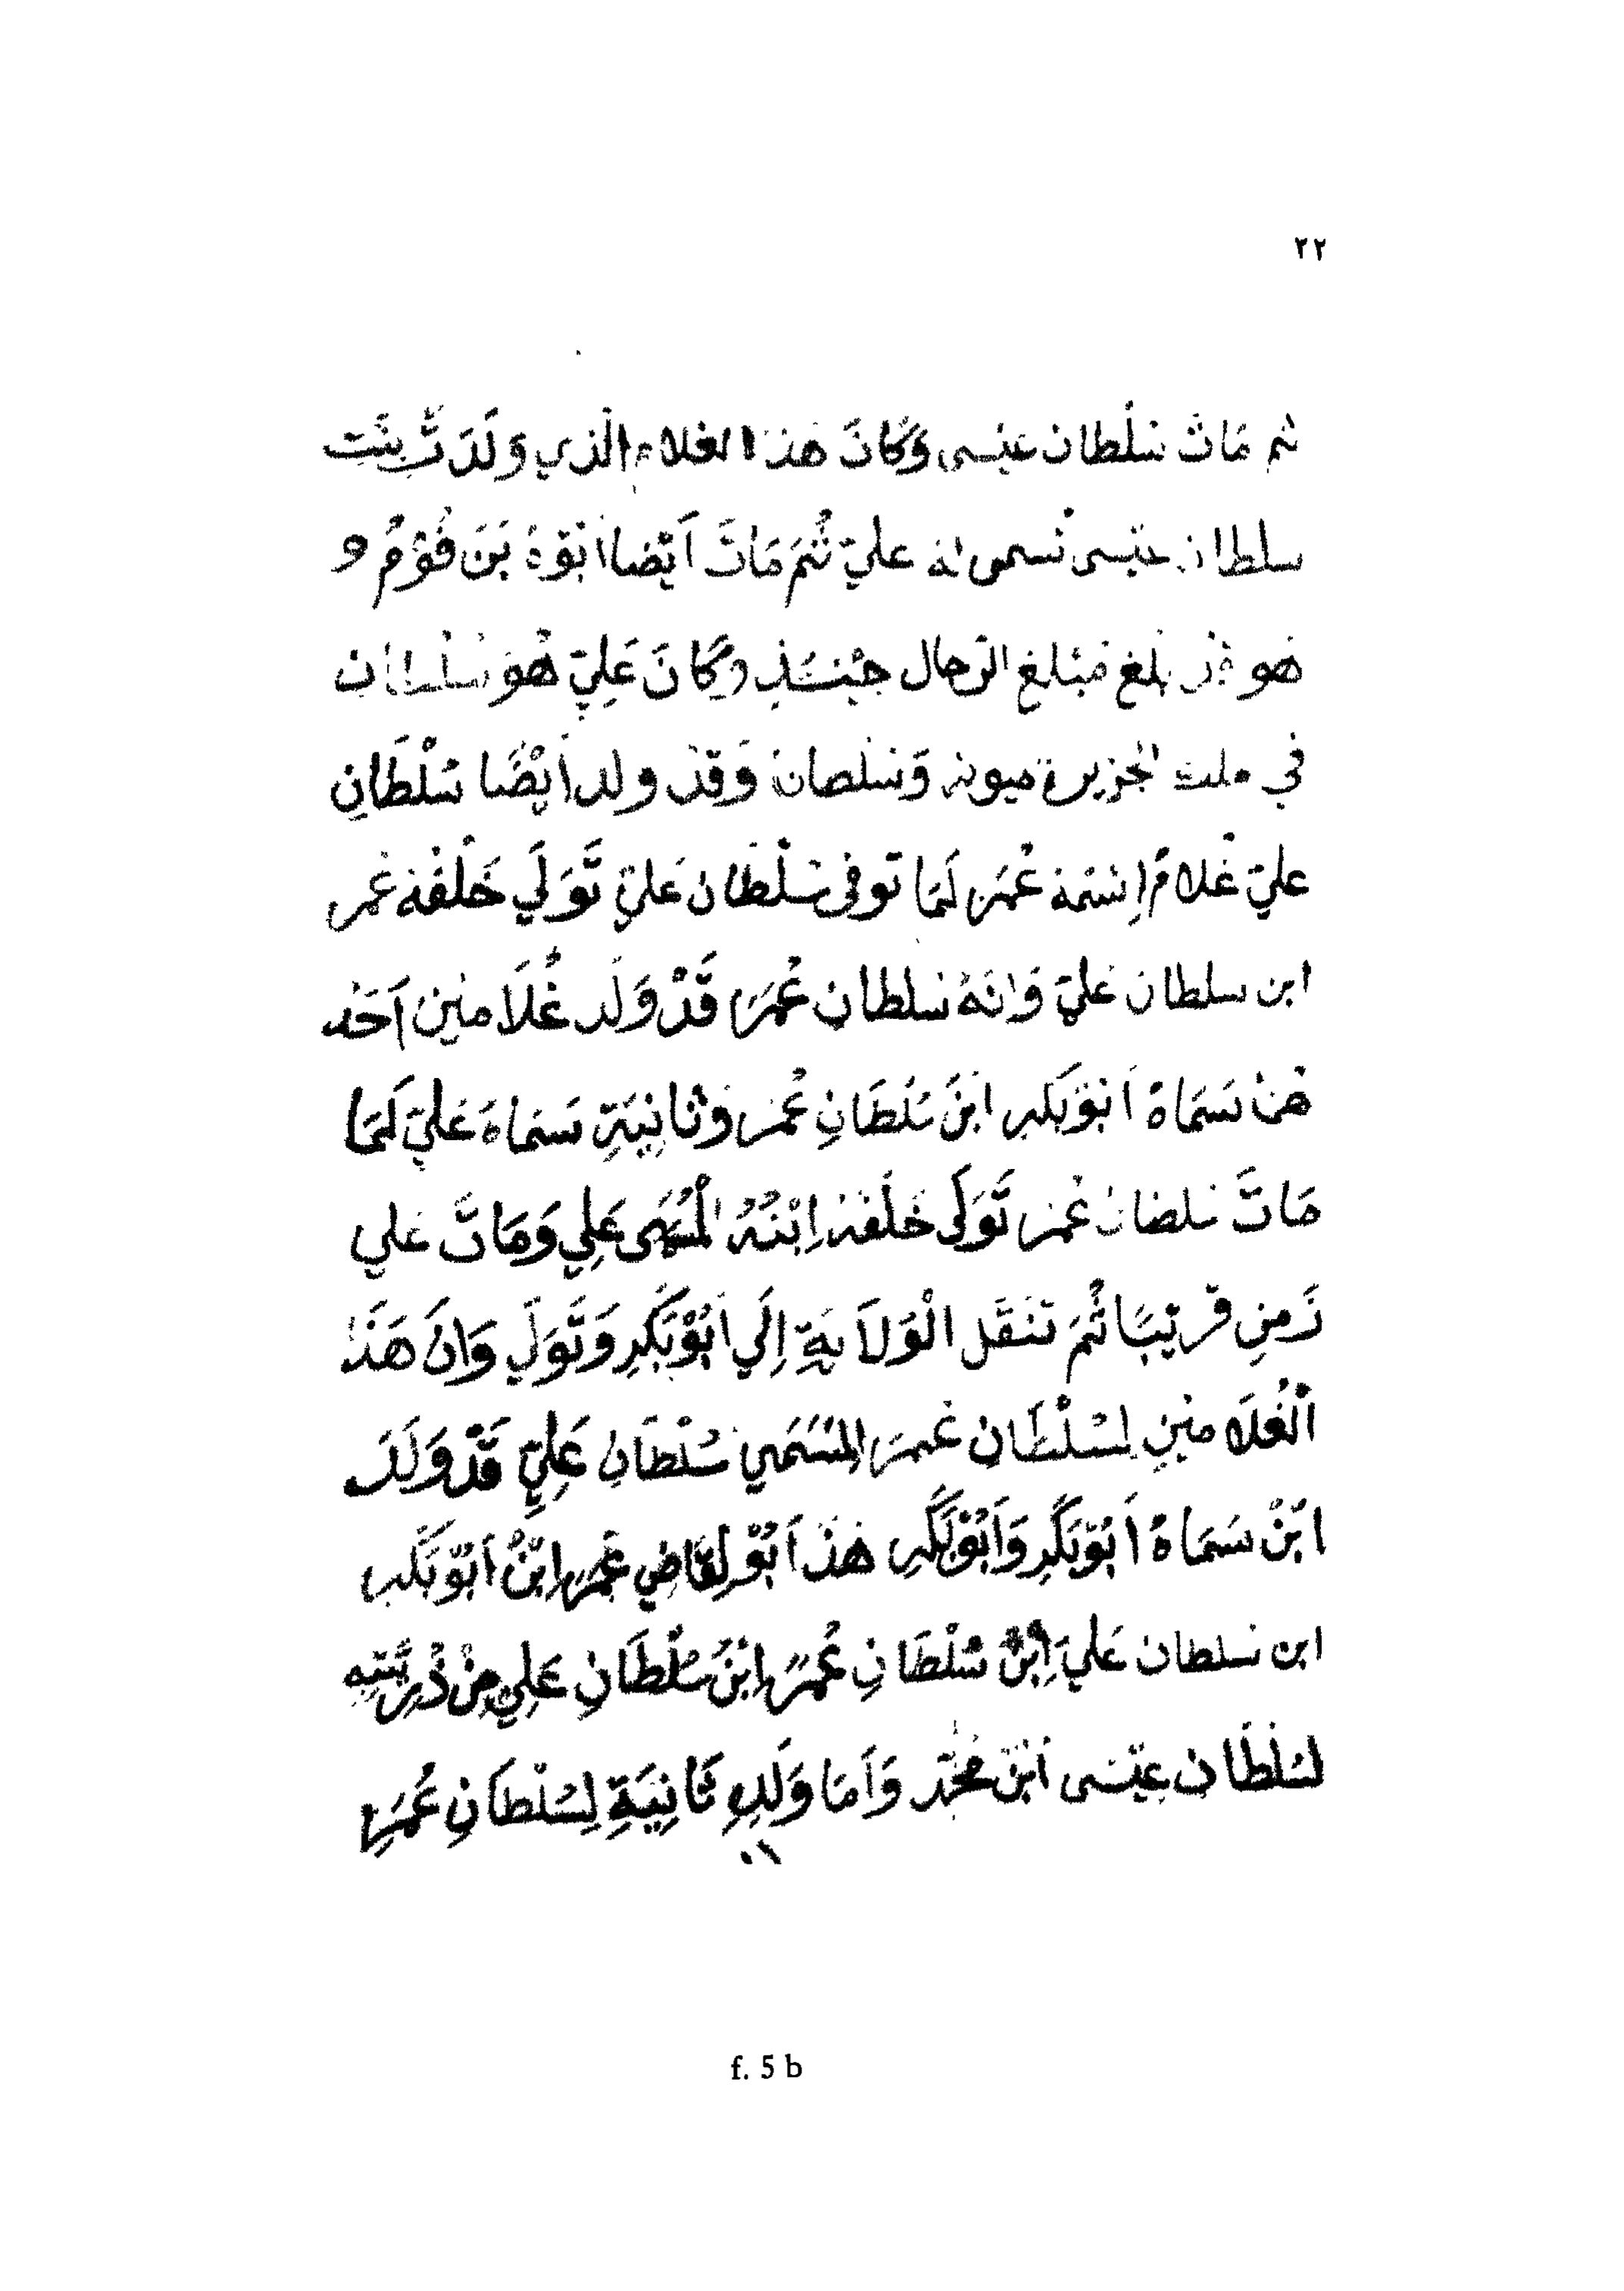 ٢٢
ثم مَاتَ سُلْطان عيسى وَكَانَ هَذا الغلام الَّذي وَلَدَتْ بِنْتِ
سلطان عيسى تسمى له عليّ ثُمَّ مَاتَ اَيْضا ابُوهُ بَنَ فُوْمُ و
هو قد بلغ مَبْلغ الرّجال حِيْنَئذٍ وكَانَ عَلِيّ هُوَ سُلْطان
في ملك الجزيرة ميوته وَسُلطان وَقَدْ ولد اَيْضًا سُلْطَانِ
عليّ غلامٌ اِسْمه عُمَر لَمَا توفى سُلْطان عَليّ تَّوَلَي خَلْفَه عُمر
ابن سلطان عَليّ وَانَهُ سُلطانِ عُمَرَ قَدْ وَلَد غُلَامَيْنِ اَحَدَ
هُمْ سَمَاهُ اَبُوْبَكرِ ابْنَ سُلْطَانِ عُمر وثَانِيَةِ سَمَاهُ عَليّ لَمَا
مَاتَ سُلطانُ عُمر تَّوَلَى خَلْفَه اِبْنُهُ المُسَمَى عَلِي وَمَاتَ عَلي
زَمنٍ قَرِيْبًا ثُمَ تَنَقَل الْوَلَايَةِ اِلَي اَبُوْبَكْرِ وَتَّوَلَي وَانَ هَذَا
الْغُلَامَيْنِ لِسُلْطَانِ عُمَرَ المُسَمَي سُلْطَانِ عَلِيٍّ قَدْ وَلَدَ
ابْنُ سَمَاهُ اَبُوْبَكْرِ وَاَبُوْبَكْرِ هَذَ اَبُوْ لِقَاضِي عُمَرِ ابْنُ اَبُوْبَكَر
ابن سلطان عَليَ اِبْنُ سُلْطَانِ عُمَرً اِبْنُ سُلْطَانِ عَلِي مِنْ ذُرِيَّتِهِ
لسُلْطَان عِيْسى ابْن مُحَمّد وَاَمَا وَلَدِ ثَانِيَةِ لِسُلْطَانِ عُمَرِ
f. 5 b